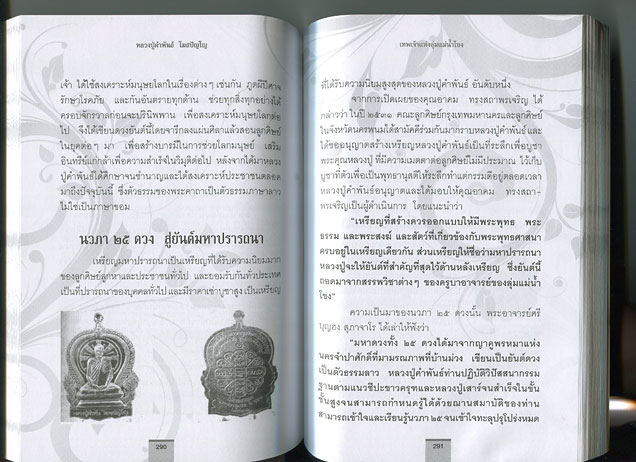 หลวงปู่คำพันธ์ โฆสปัญโญ
เจ้า ได้ใช้สงเคราะห์มนุษยโลกในเรื่องต่างๆ เช่นกัน ภูตผีปีศาจ
รักษาโรคภัย และกันอันตรายทุกด้าน ช่วยทุกสิ่งทุกอย่างได้
ครอบจักรวาลก่อนจะปรินิพพาน เพื่อสงเคราะห์มนุษย์โลกต่อ
ไป จึงได้เขียนดวงยันต์นี้โดยจารึกลงแผ่นศิลาแล้วสอนลูกศิษย์
ในยุคต่อๆ มา เพื่อสร้างบารมีในการช่วยโลกมนุษย์ เสริม
อินทรีย์แก่กล้าเพื่อความสำเร็จในวิมุติต่อไป หลังจากได้มาหลวง
ปู่คำพันธ์ได้ศึกษาจนชำนาญและได้สงเคราะห์ประชาชนตลอด
มาถึงปัจจุบันนี้ ซึ่งตัวธรรมของพระคาถาเป็นตัวธรรมภาษาลาว
ไม่ใช่เป็นภาษาขอม
นวภา ๒๕ ดวง สู่ยันต์มหาปรารถนา
เหรียญมหาปรารถนาเป็นเหรียญที่ได้รับความนิยมมาก
ของลูกศิษย์ลูกหาและประชาชนทั่วไป และยอมรับกันทั่วประเทศ
เป็นที่ปรารถนาของบุคคลทั่วไป และมีราคาเช่าบูชาสูง เป็นเหรียญ
290
เทพเจ้าแห่งลุ่มแม่น้ำโขง
ที่ได้รับความนิยมสูงสุดของหลวงปู่คำพันธ์ อันดับหนึ่ง
จากการเปิดเผยของคุณอาคม ทรงสถาพรเจริญ ได้
กล่าวว่า ในปี ๒๕๓๑ คณะลูกศิษย์กรุงเทพมหานครและลูกศิษย์
ในจังหวัดนครพนมได้สามัคคีร่วมกันมากราบหลวงปู่คำพันธ์และ
ได้ขออนุญาตสร้างเหรียญหลวงปู่คำพันธ์เป็นที่ระลึกเพื่อบูชา
พระคุณหลวงปู่ ที่มีความเมตตาต่อลูกศิษย์ไม่มีประมาณ ไว้เก็บ
บูชาที่ตัวเพื่อเป็นพุทธานุสติให้ระลึกทำแต่กรรมดีอยู่ตลอดเวลา
หลวงปู่คำพันธ์อนุญาตและได้มอบให้คุณอาคม ทรงสถา-
พรเจริญเป็นผู้ดำเนินการ โดยแนะนำว่า
"เหรียญที่สร้างควรออกแบบให้มีพระพุทธ พระ
ธรรม และพระสงฆ์ และสัตว์ที่เกี่ยวข้องกับพระพุทธศาสนา
ครบอยู่ในเหรียญเดียวกัน ส่วนเหรียญให้ชื่อว่ามหาปรารถนา
หลวงปู่จะให้ยันต์ที่สำคัญที่สุดไว้ด้านหลังเหรียญ ซึ่งยันต์นี้
ถอดมาจากสรรพวิชาต่างๆ ของครูบาอาจารย์ของลุ่มแม่น้ำ
โขง"
ความเป็นมาของนวภา ๒๕ ดวงนั้น พระอาจารย์ศรี
บุญอง สุภาจาโร ได้เล่าให้ฟังว่า
"มหาดวงทั้ง ๒๕ ดวงได้มาจากญาคูพรหมาแห่ง
นครจำปาศักดิ์ที่มามรณภาพที่บ้านม่วง เขียนเป็นยันต์ดวง
เป็นตัวธรรมลาว หลวงปู่คำพันธ์ท่านปฏิบัติวิปัสสนากรรม
ฐานตามแนวชีปะขาวครุฑและหลวงปู่เสาร์จนสำเร็จในขั้น
ชั้นสูงจนสามารถกำหนดรู้ได้ด้วยฌานสมาบัติของท่าน
สามารถเข้าใจและเรียนรู้นวภา ๒๕ จนเข้าใจทะลุปรุโปร่งหมด
291